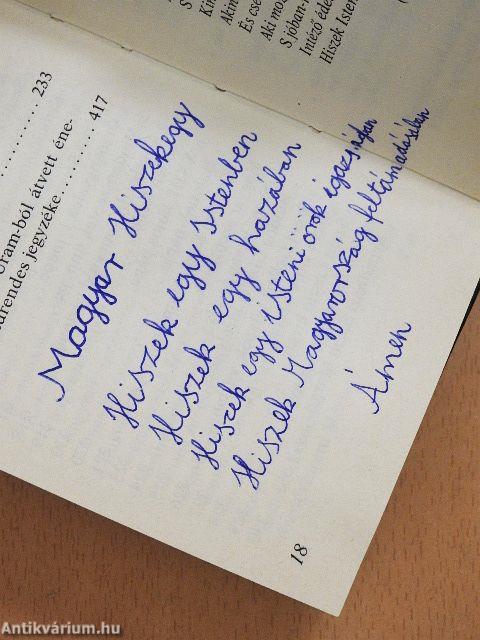 233
Uram-ból átvett éne-
jegyzéke .......... 417
Magyar Hiszekegy
Hiszek egy Istenben
Hiszek egy hazában
Hiszek egy isteni örök igazságban
Hiszek Magyarország feltámadásában
Ámen
18
És cse
Aki mo
S jóban-
Intéző éde
Hiszek Isten
Antikvárium.hu